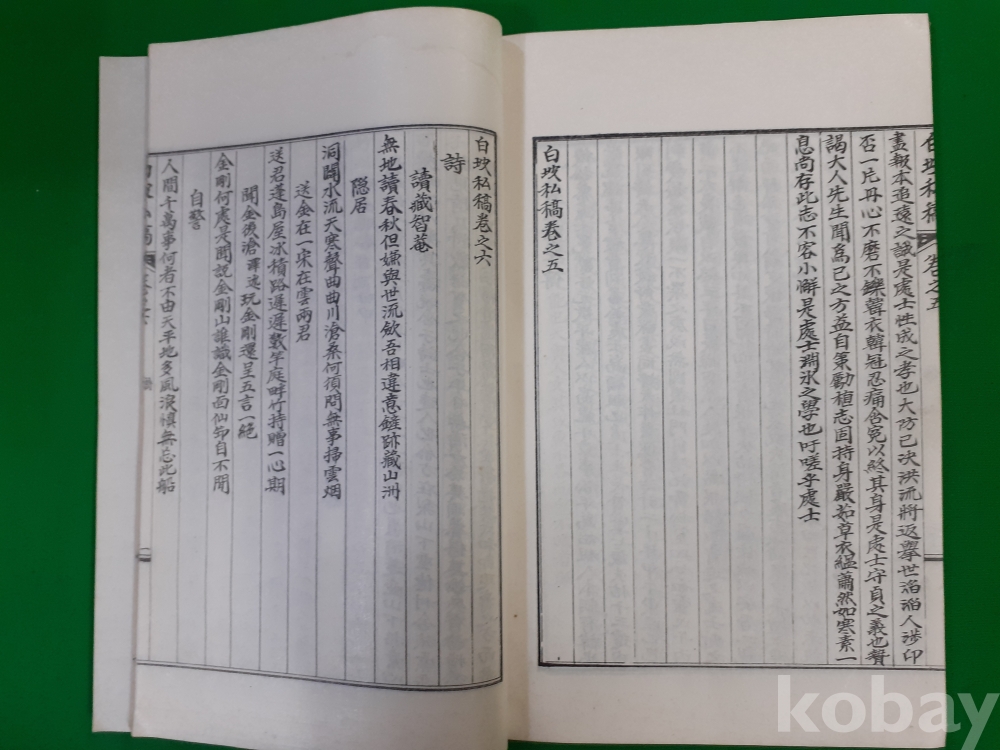 白坡私稿 卷之五
盡報本追遠之誠是處士性成之孝也大防已决洪流將返擧世滔滔人涉卬
否一片丹心不磨不鑠韓衣韓冠忍痛含冤以終其身是處士守貞之義也贄
謁大人先生聞爲己之方益自策勵植志固持身嚴茹草衣縕蕭然如寒素一
息尚存此志不容小懈是處士淵氷之學也吁嗟乎處士
白坡私稿卷之五
白坡私稿卷之六
詩
讀藏智菴
無地讀春秋但嫌與世流欽吾相違意鏟跡藏山洲
隠居
洞闢水流天寒聲曲曲川滄桑何須問無事掃雲烟
送金在一宋在雲兩君
送君蓬島屋氷積路遲遲數竿庭畔竹持贈一心期
聞金後滄澤述玩金剛還呈五言一絶
金剛何處是聞説金剛山誰識金剛面仙節自不閒
自警
人間千萬事何者不由天平地多風浪愼無忘此船
kobay